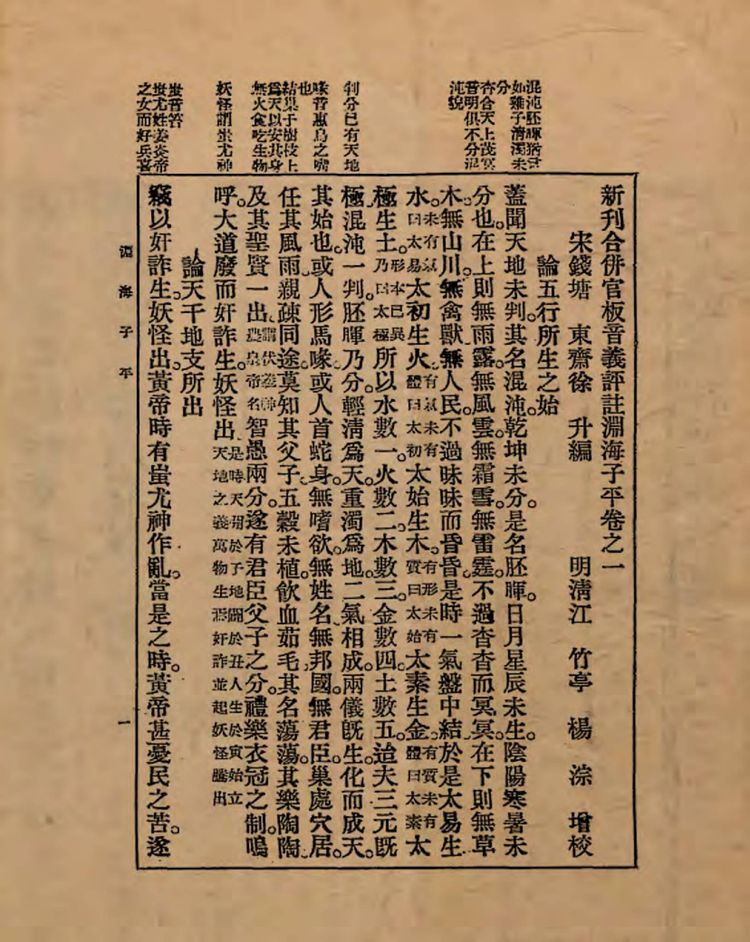 混沌胚暉猶言
如雞子清濁未
分
杳合天上茂冥
昏明俱不分混
沌貌
判分已有天地
喙音惠鳥之嘴
也
結巢子樹枝上
為天以安其身
無火食吃生物
妖怪謂蚩尤神
蚩音答
蚩尤姓姜炎帝
之女而好兵喜
新刊合併官板音義評註淵海子平卷之一
宋錢塘　東齋徐　升編　明淸江　竹亭　楊　淙　增校
論五行所生之始
蓋聞天地未判。其名混沌。乾坤未分。是名胚暉。日月星辰未生。陰陽寒暑未
分也。在上則無雨露。無風雲。無霜雪。無雷霆。不過杳杳而冥冥。在下則無草
木。無山川。無禽獸。無人民。不過昧昧而昏昏。是時一氣盤中結。於是太易生
水。未有氣曰太易太初生火。有氣未有體曰太初太始生木。有形未有質曰太始太素生金。有質未有體曰太素太
極生土。形本已具乃曰太極所以水數一。火數二。木數三。金數四。土數五。迨夫三元旣
極。混沌一判。胚暉乃分。輕淸爲天。重濁爲地。二氣相成。兩儀旣生。化而成天。
其始也。或人形馬喙。或人首蛇身。無嗜欲。無姓名。無邦國。無君臣。巢處穴居。
任其風雨。親疎同途。莫知其父子。五穀未植。飲血茹毛。其名蕩蕩。其樂陶陶。
及其聖賢一出。謂伏羲神農皇帝名智愚兩分。遂有君臣父子之分。禮樂衣冠之制。嗚
呼。大道廢而奸詐生。妖怪出。是時天開於子地闢於丑人生於寅始立天地之義萬物生焉奸詐並起妖怪騰出
論天干地支所出
竊以奸詐生。妖怪出。黃帝時有蚩尤神作亂。當是之時。黃帝甚憂民之苦。遂
淵海子平
一